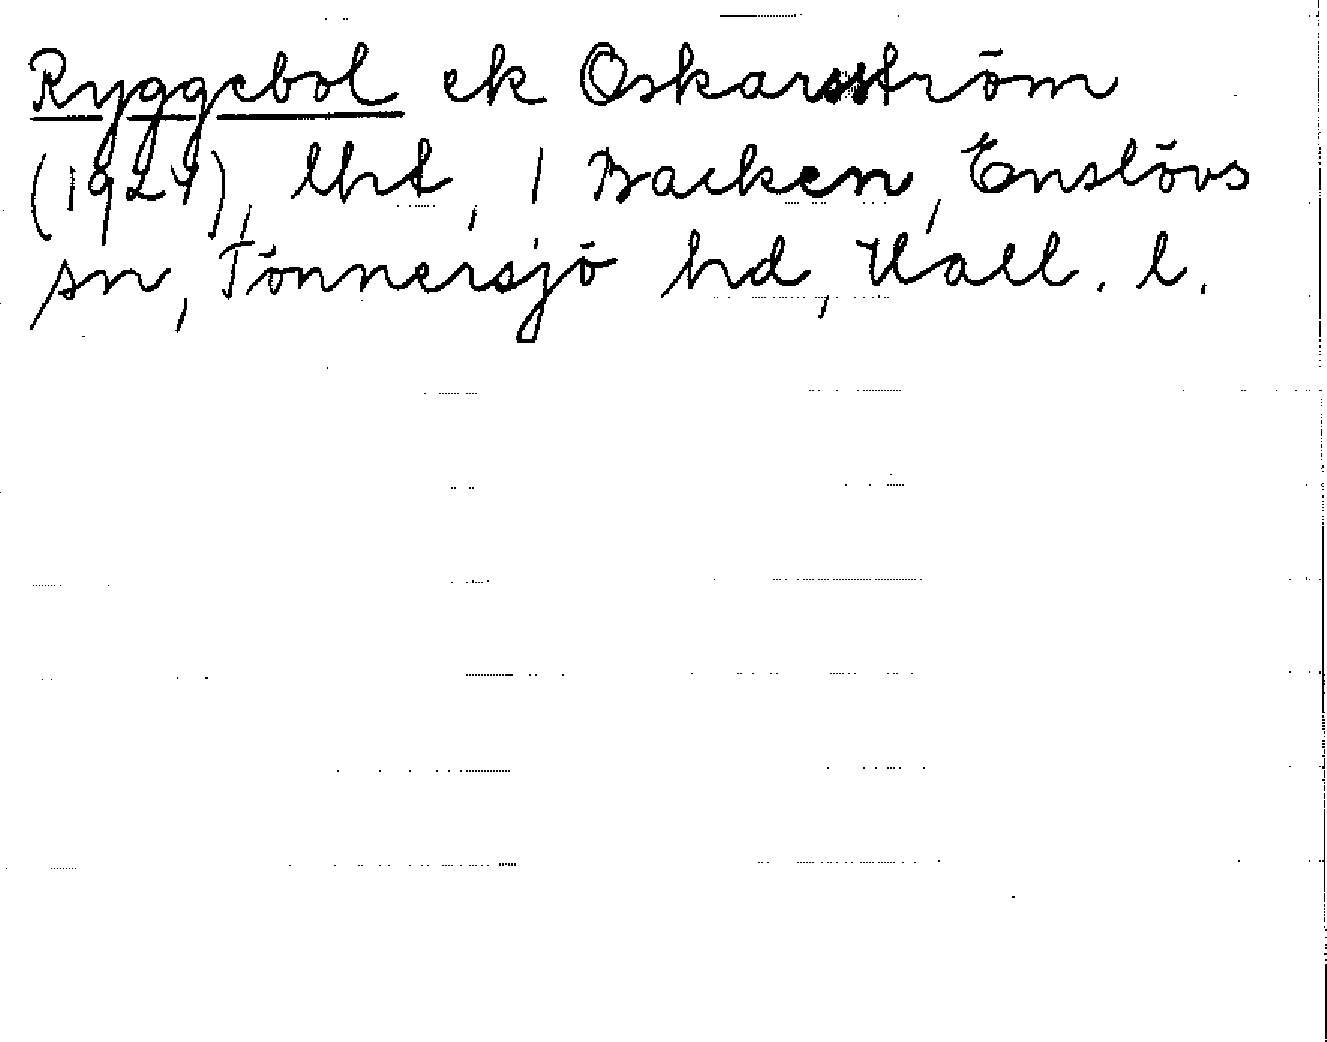 Ryggebol ek Oskarsström
(1924), lht, 1 Backen, Enslövs
sn, Tönnersjö hd, Hall. l.